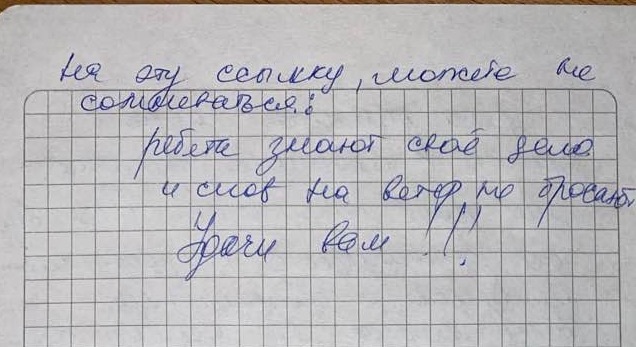 на эту ссылку, можете не
сомневаться:
ребята знают своё дело
и слов на ветер не бросают
Удачи вам!!!